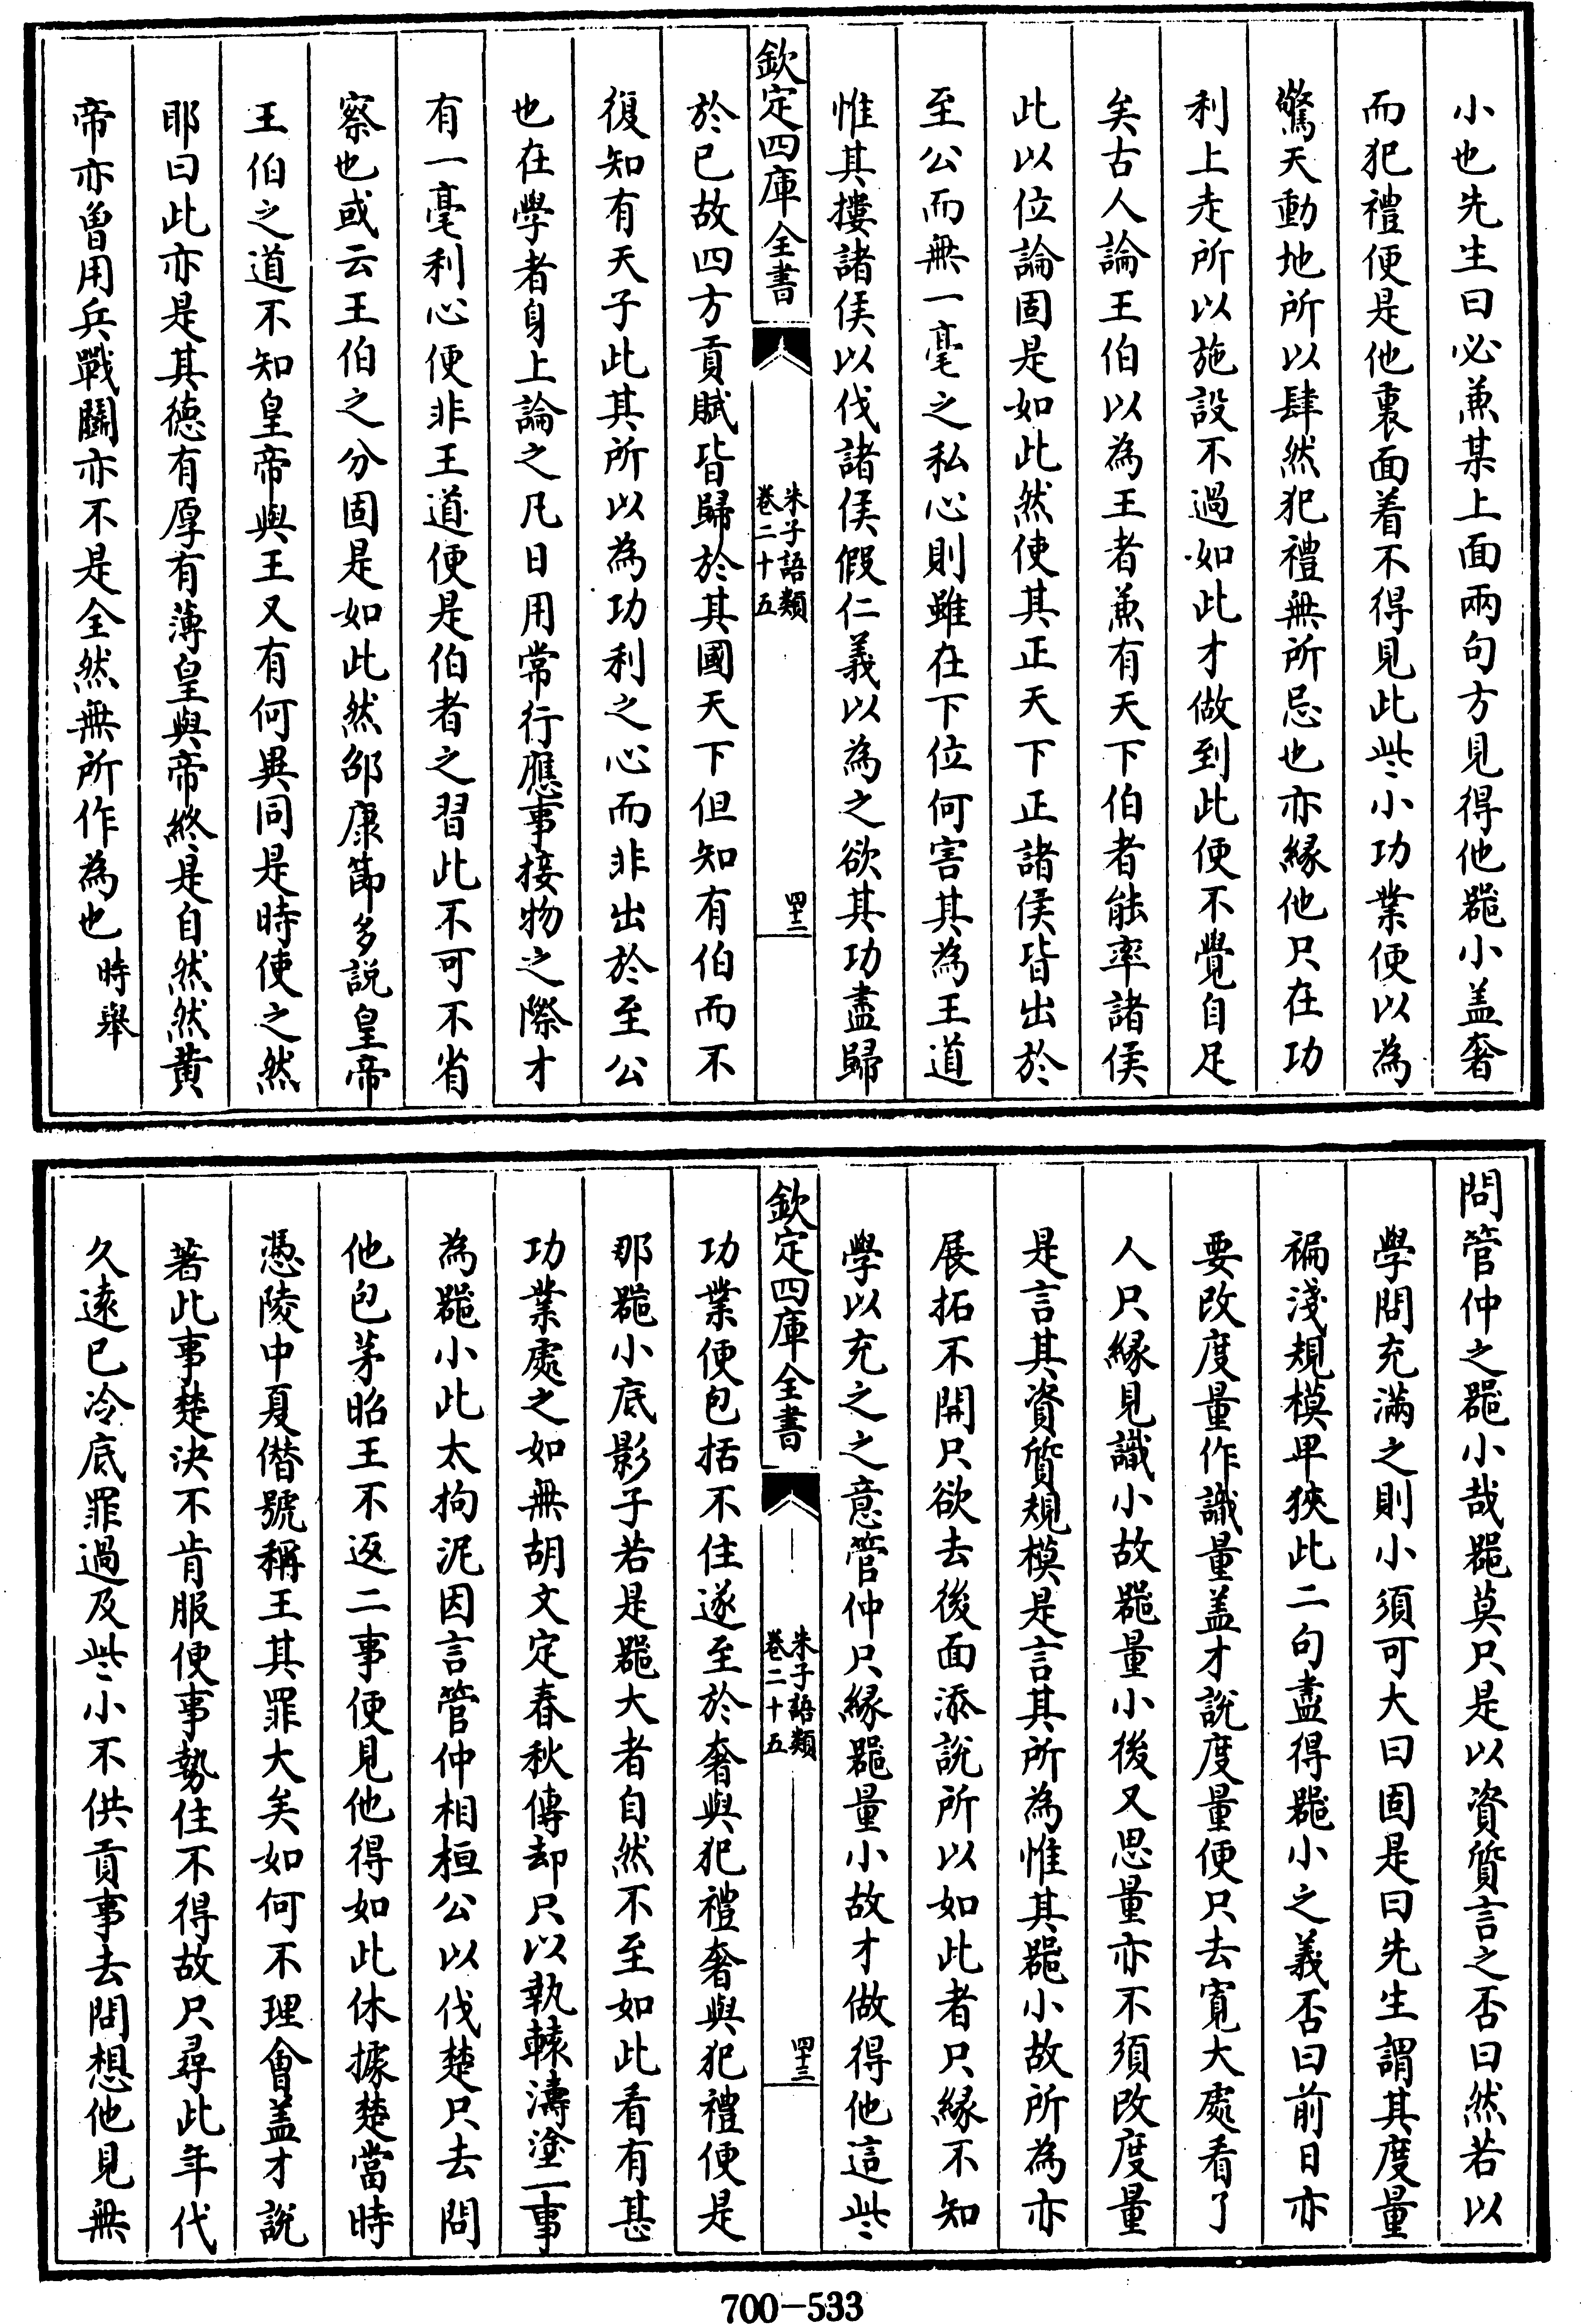 小也先生曰必兼某上面兩句方見得他器小盖奢
而犯禮便是他裏面着不得見此些小功業便以為
驚天動地所以肆然犯禮無所忌也亦緣他只在功
利上走所以施設不過如此才做到此便不覺自足
矣古人論王伯以為王者兼有天下伯者能率諸侯
此以位論固是如此然使其正天下正諸侯皆出於
至公而無一毫之私心則雖在下位何害其為王道
惟其摟諸侯以伐諸侯假仁義以為之欲其功盡歸
欽定四庫全書
朱子語類
卷二十五
四十二
於已故四方貢賦皆歸於其國天下但知有伯而不
復知有天子此其所以為功利之心而非出於至公
也在學者身上論之凡日用常行應事接物之際才
有一毫利心便非王道便是伯者之習此不可不省
察也或云王伯之分固是如此然邵康節多説皇帝
王伯之道不知皇帝與王又有何異同是時使之然
耶曰此亦是其德有厚有薄皇與帝終是自然然黃
帝亦曾用兵戰鬬亦不是全然無所作為也時舉
問管仲之器小哉器莫只是以資質言之否曰然若以
學問充滿之則小須可大曰固是曰先生謂其度量
褊淺規模卑狹此二句盡得器小之義否曰前日亦
要改度量作識量盖才説度量便只去寬大處看了
人只緣見識小故器量小後又思量亦不須改度量
是言其資質規模是言其所為惟其器小故所為亦
展拓不開只欲去後面添説所以如此者只緣不知
學以充之之意管仲只緣器量小故才做得他這些
欽定四庫全書
朱子語類
卷二十五
四十三
功業便包括不住遂至於奢與犯禮奢與犯禮便是
那器小底影子若是器大者自然不至如此看有甚
功業處之如無胡文定春秋傳却只以執轅濤塗一事
為器小此太拘泥因言管仲相桓公以伐楚只去問
他包茅昭王不返二事便見他得如此休據楚當時
憑陵中夏僭號稱王其罪大矣如何不理會盖才説
著此事楚決不肯服便事勢住不得故只尋此年代
久逺已冷底罪過及些小不供貢事去問想他見無
700-533